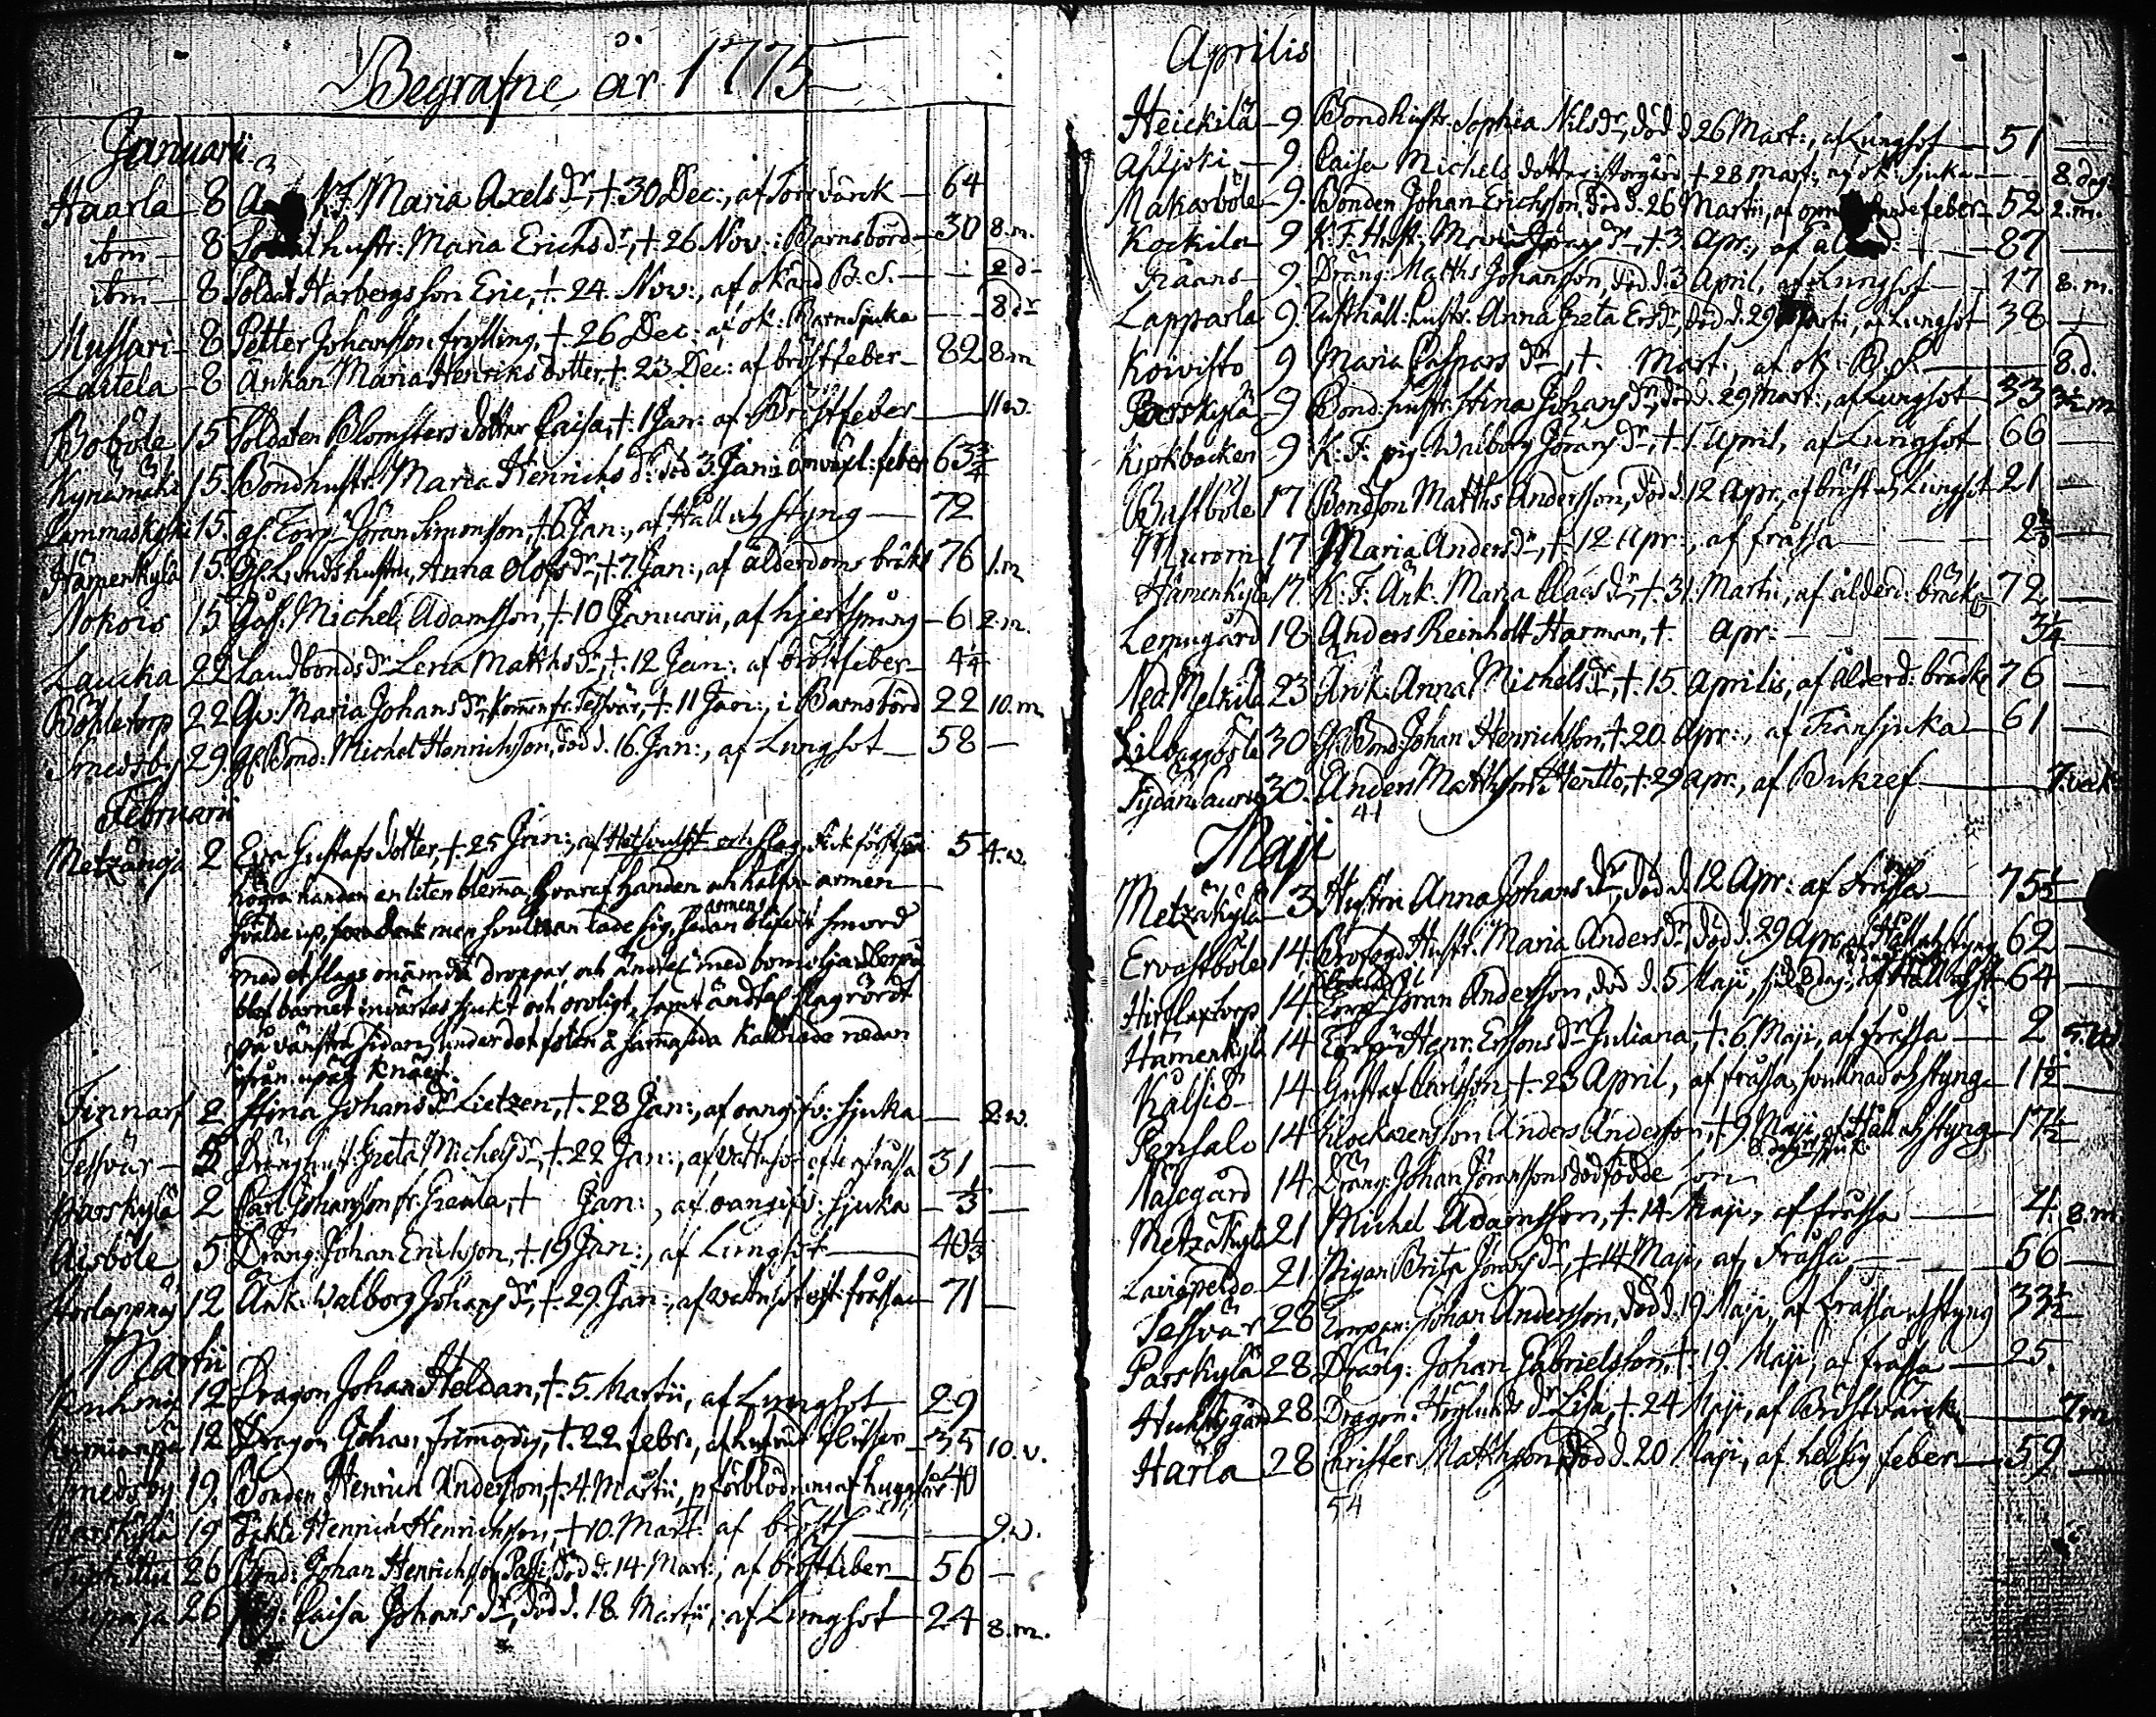 Begrafne år 1775
Januarii
Haarla 8 K.F. Maria Axels dr, †. 30 Dec:, af Torrvärck 64
ibm 8 hustr: Maria Erichsdr, †. 26 Nov: i Barnsbörd 30 8.m.
ibm 8 Soldat Harbergs son Eric, †. 24. Nov:, af okänd B.S. 2 d
Mussari 8 Petter Johansson frylling, †. 26 Dec: af ok: Barnsjuka 8 dr
Laitela 8 Änkan Maria Henriks dotter, †. 23 Dec: af bröstfeber 82 8.m
Boböle 15 Soldaten Blomsters dotter Caisa, †. 1 Jan: af Bröstfeber 11 w.
Kynämäki 15. Bondhustr. Maria Henrichs dr. död 3. Jan: omväxl: feber 63 3/4
Lammaskyhi 15. gl. Torp Jöran Simonsson, †. 6 Jan:, af Håll och styng 72
Hämenkylä 15. Gl. Lundshustru, Anna Olofs dr, †. 7. Jan:, af ålderdoms bräckl 76 1.m
Nokois 15 Michel Adamsson, †. 10 Januarii, af hjertsprång 6 2.m.
Laucka 22 Landbonds dr Lena Matthsdr, †. 12 Jan: af bröstfeber 4 1/4
Böhletorp 22 Qv: Maria Johans dr, kommen fr. Tessvär, †. 11 Jan:, i Barnsbörd 22 10.m.
Smedsby 29. gl Bond: Michel Henrichsson, död d. 16. Jan:, af Lungsot 58 —
Februarii
Metzängi 2 Eva Gustafs dotter, †. 25 Jan:, af Hetsvulst och slag, fick först på 5 4.w.
högra handen en liten blemma, hvaraf handen och halfva armen
svälde up, men svullnan lade sig, sedan armen blifvit smord
med et slags onämnda droppar, och ändtel: med bomolja
blef barnet invärtes sjukt och oroligt, samt ändtel slagrördt
på vänstra sidan, under det foten å samma sida kallnade nedan
ifrån upåt knäet.
Finnars 2 Stina Johans dr Lietzen, †. 28 Jan:, af oangifv: sjuka 2.w.
Tessvär 2 Dränghust. Greta Michels dr, †. 22 Jan:, af vattusot efter frossa 31 —
Parskylä 2 Carl Johansson fr. Greula, † Jan:, af oangifv: sjuka 1/3 —
Aisböle 5 Dräng: Johan Erichsson, † 19 Jan:, af Lungsot 40 1/3
12 Änk: Walborg Johans dr, †. 29. Jan:, af vattusot eft: fråssan 71 —
Martii
12 Dragon Johan Heldan, †. 5. Martii, af Lungsot 29
12 Dragon Johan Frimodig, †. 22 febr:, af 35 10.v.
Smedsby 19. Bonden Henrich Andersson, †. 4. Martii, förblödning af huggsår 40
Parskylä 19 Henrich Henrichsson, † 10. Mart: af bröstf 9.w.
26 Bond: Johan Henrichsson Passi, död d. 14 Mart:, af bröstfeber 56 —
26 Pig: Caisa Johans dr, död d. 18. Martii, af Lungsot 24 8.m.
Aprilis
Heickilä 9. Bondhustr. Sophia Nils dr, död d 26 Mart:, af Lungsot 51 —
9. Caisa Michels dotter, † 28 Mart:, af ok: Sjuka 8. dag
Makarböle 9. Bonden Johan Erichsson, död d. 26 Martii, af feber 52 2.m.
Kockila 9 K.F. Hust: Maria Jöransdr, † 3. Apr:, af 87 —
Gräans 9. Dräng: Matths Johansson, död d. 3 April, af Lungsot 17 8.m.
Lapparla 9. Rusthåll: hustr. Anna Greta Ersdr, död d. 29 Martii, af Lungsot 38 —
Koivisto 9 Maria Caspars dr, †. Mart:, af ok: B.S. 8.d.
Parskylä 9 Bond: hustr. Stina Johans dr, död d. 29 Mart:, af Lungsot 33 3 1/2 m
Kyrkbacken 9 K:F. pig. Walborg Jörans dr, †. 1. April, af Lungsot 66 —
Bastböle 17 Bondson Matths Andersson, död d. 12 Apr:, af bröst och Lungsot 21 —
Murom 17 Maria Anders dr, †. 12 Apr:, af fråssa 2 2/3
Hämenkylä 17. K.F. Änk: Maria Claes dr, †. 31. Martii, af ålderd: bräck 72 —
Lepugård 18 Anders Reinholt Harman, †. Apr: 3 1/4
Ned. Melkila 23 Änk: Anna Michels dr, †. 15. Aprilis, af ålderd: bräckl 76 —
Lilbaggböle 30 Gl. Bond: Johan Henrichsson, †. 20. Apr:, af Fransjuka 61 —
30. Anders Matthsson Hentto, †. 29 apr:, af Bukref 7. veck
41
Maji
Metzäkylä 3 Hustru Anna Johans dr, död d. 12 Apr: af Fråssa 75 1/2
Ervastböle 14. Hustr. Maria Anders dr, död d. 29 Apr: af Håll och styng 62 —
14. Torp. Jöran Andersson, död d. 5 Maji, af Håll och st 64 —
Hämenkylä 14 Torp: Henr: Erssons dr Juliana, †. 6. Maji, af fråssa 2 5.w
Kalsio 14 Gustaf Carlsson, †. 23 April, af fråssa, svullnad och styng 11 1/2
Pensalo 14 Klockarens son Anders Andersson, †. 9. Maji, af Håll och styng 17 1/2
Näsegård 14 Dräng: Johan Jöranssons dödfödde son
Metzäkylä 21 Michel Adamsson, †. 14 Maji, af fråssa 4. 8.m
21. Pigan Brita Jörans dr, † 14 Maji, af Fråssa 56 —
Tessvär 28 Johan Andersson, död d. 19 Maji, af Fråssa och styng 33 1/2
Parskylä 28 Dräng: Johan Gabrielsson, †. 19. Maji, af fråssa 25.
28. Dragon: Höglunds dr Lisa, †. 24 Maji, af Bröstvärck 7 m
Harla 28 Christer Matthsson, död d. 20 Maji, af hetsig feber 59 —
54